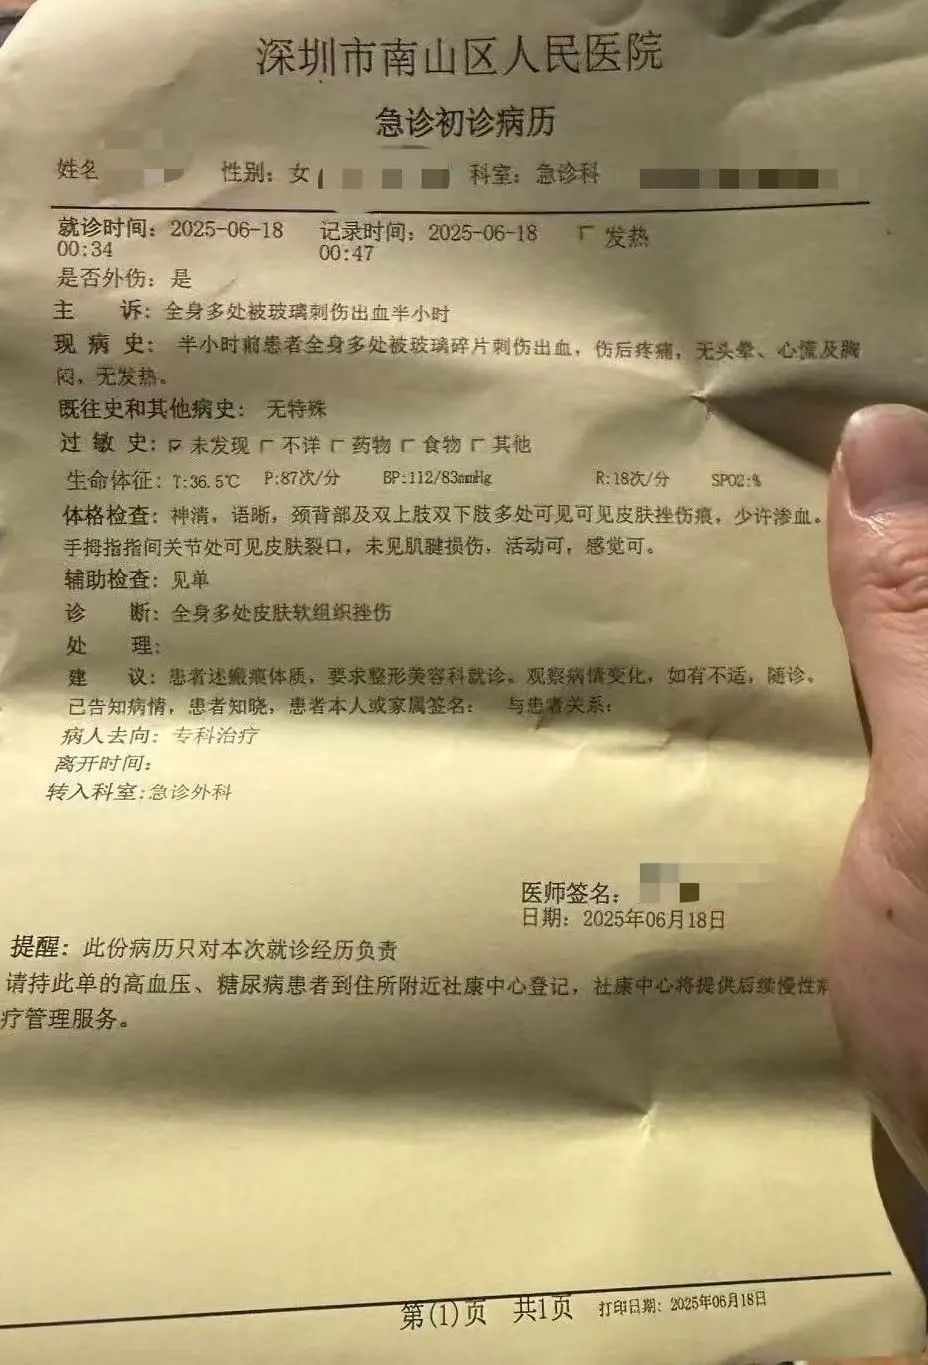 深圳市南山区人民医院
急诊初诊病历
姓名 性别：女 科室：急诊科
就诊时间：2025-06-18 记录时间：2025-06-18 发热
00:34 00:47
是否外伤：是
主 诉：全身多处被玻璃刺伤出血半小时
现 病 史： 半小时前患者全身多处被玻璃碎片刺伤出血，伤后疼痛，无头晕、心慌及胸
闷，无发热。
既往史和其他病史： 无特殊
过 敏 史：☑未发现 □不详 □药物 □食物 □其他
生命体征：T:36.5℃ P:87次/分 BP:112/83mmHg R:18次/分 SPO2:%
体格检查：神清，语晰，颈背部及双上肢双下肢多处可见可见皮肤挫伤痕，少许渗血。
手拇指指间关节处可见皮肤裂口，未见肌腱损伤，活动可，感觉可。
辅助检查：见单
诊 断：全身多处皮肤软组织挫伤
处 理：
建 议：患者述瘢痕体质，要求整形美容科就诊。观察病情变化，如有不适，随诊。
已告知病情，患者知晓，患者本人或家属签名： 与患者关系：
病人去向：专科治疗
离开时间：
转入科室:急诊外科
医师签名：
日期：2025年06月18日
提醒：此份病历只对本次就诊经历负责
请持此单的高血压、糖尿病患者到住所附近社康中心登记，社康中心将提供后续慢性病
疗管理服务。
第(1)页 共1页 打印日期：2025年06月18日